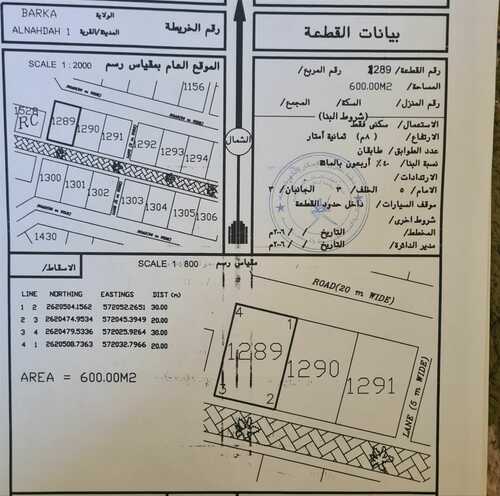 BARKA الولاية
ALNAHDAH 1 المدينة/القرية
رقم الخريطة
بيانات القطعة
الموقع العام بمقياس رسم SCALE 1:2000
1156
1528
RC
1289
1290
1291
1292
1293
1294
1300
1301
1302
1303
1304
1305
1306
1430
الشمال
رقم القطعة/ 1289 رقم المربع/
المساحة/ 600.00M2
رقم المنزل/ السكة/ المجمع/
(شروط البنا)
الاستعمال/ سكني فقط
الارتفاع/ (٨م) ثمانية أمتار
عدد الطوابق/ طابقان
نسبة البنا/ ٤٠٪ أربعون بالمائة
الارتدادات/
الامام/ ٥ الخلف/ ٣ الجانبان/ ٣
موقف السيارات/ داخل حدود القطعة
شروط اخرى/
المخطط/ التاريخ / /٢٠٠٦م
مدير الدائرة/ التاريخ / /٢٠٠٦م
الاسقاط/ SCALE 1:800 مقياس رسم
LINE NORTHING EASTINGS DIST (m)
1 2 2620504.1562 572052.2651 30.00
2 3 2620474.9534 572045.3949 20.00
3 4 2620479.5336 572025.9264 30.00
4 1 2620508.7363 572032.7966 20.00
AREA = 600.00M2
ROAD(20 m WIDE)
4
1
1289
1290
1291
3
2
LANE (5 m WIDE)